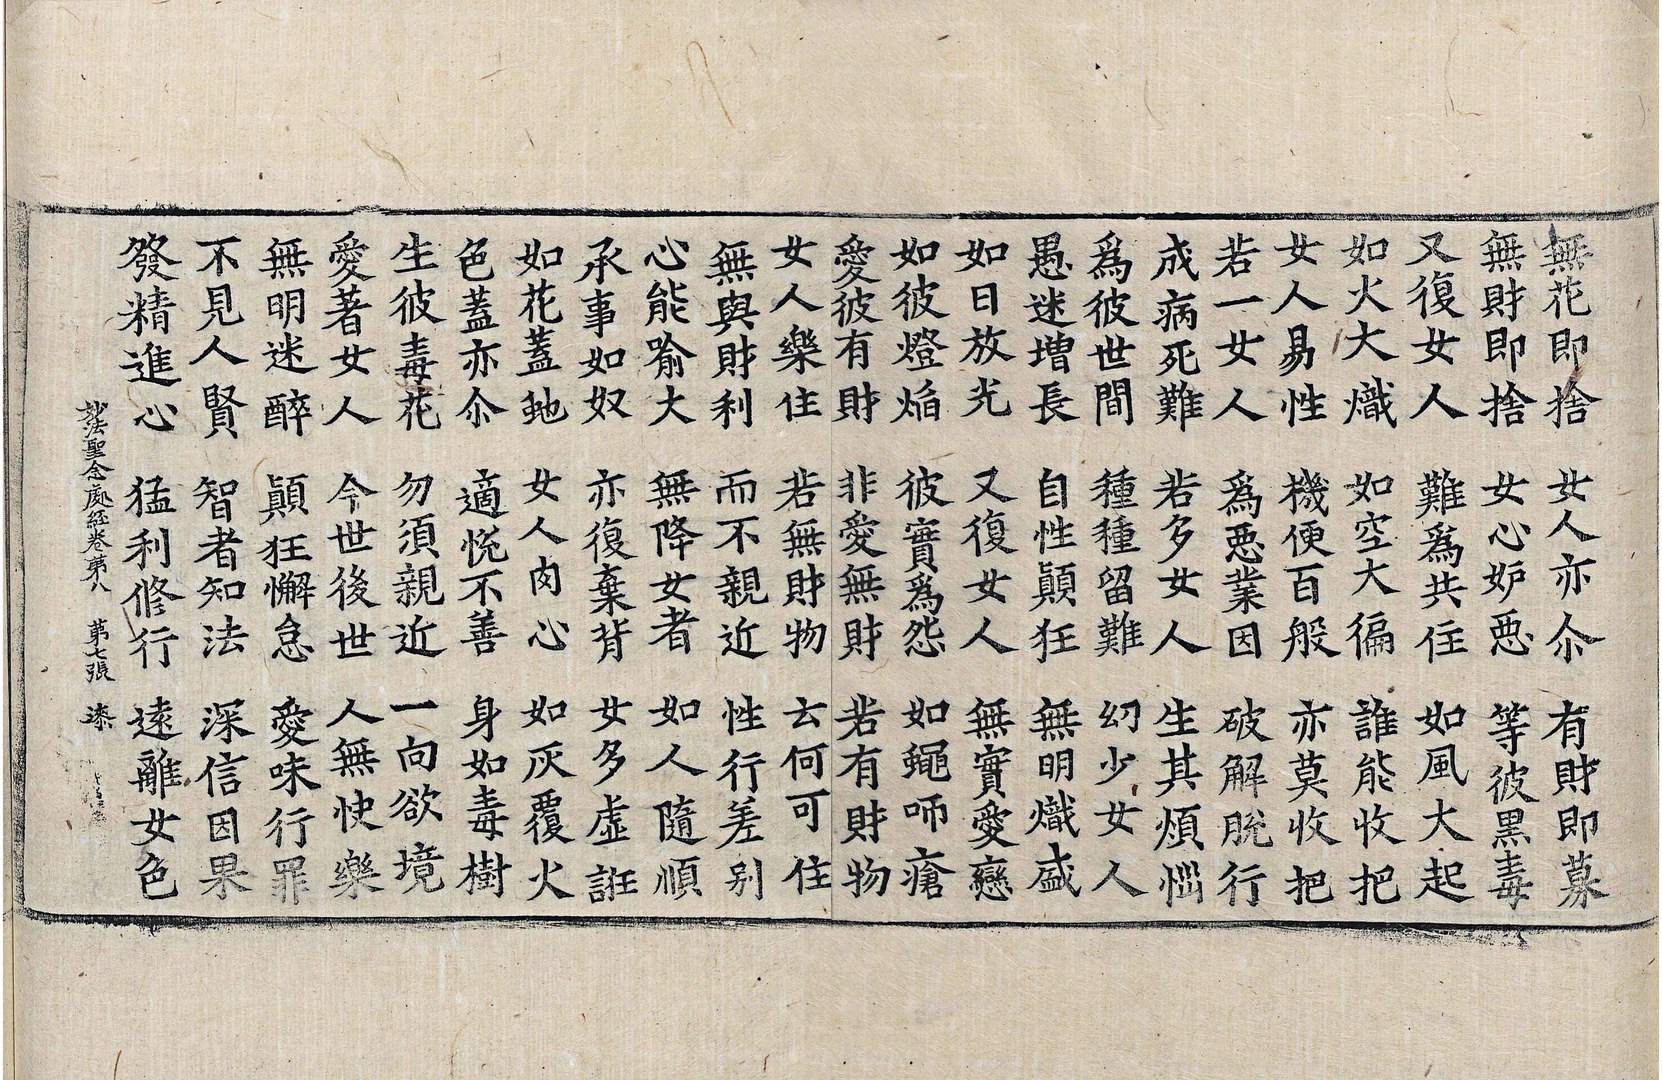 無花即捨 女人亦尒 有財即募
無財即捨 女心妒惡 等彼黑毒
又復女人 難爲共住 如風大起
如火大熾 如空大徧 誰能收把
女人易性 機便百般 亦莫收把
若一女人 爲惡業因 破解脫行
成病死難 若多女人 生其煩惱
爲彼世間 種種留難 幻少女人
愚迷增長 自性顛狂 無明熾盛
如日放光 又復女人 無實愛戀
如彼燈焰 彼實爲怨 如蠅咂瘡
愛彼有財 非愛無財 若有財物
女人樂住 若無財物 云何可住
無與財利 而不親近 性行差別
心能喻大 無降女者 如人隨順
承事如奴 亦復棄背 女多虛誑
如花蓋虵 女人肉心 如灰覆火
色蓋亦尒 適悅不善 身如毒樹
生彼毒花 勿須親近 一向欲境
愛著女人 今世後世 人無快樂
無明迷醉 顛狂懈怠 愛味行罪
不見人賢 智者知法 深信因果
發精進心 猛利修行 遠離女色
妙法聖念處經卷第八 第七張 漆